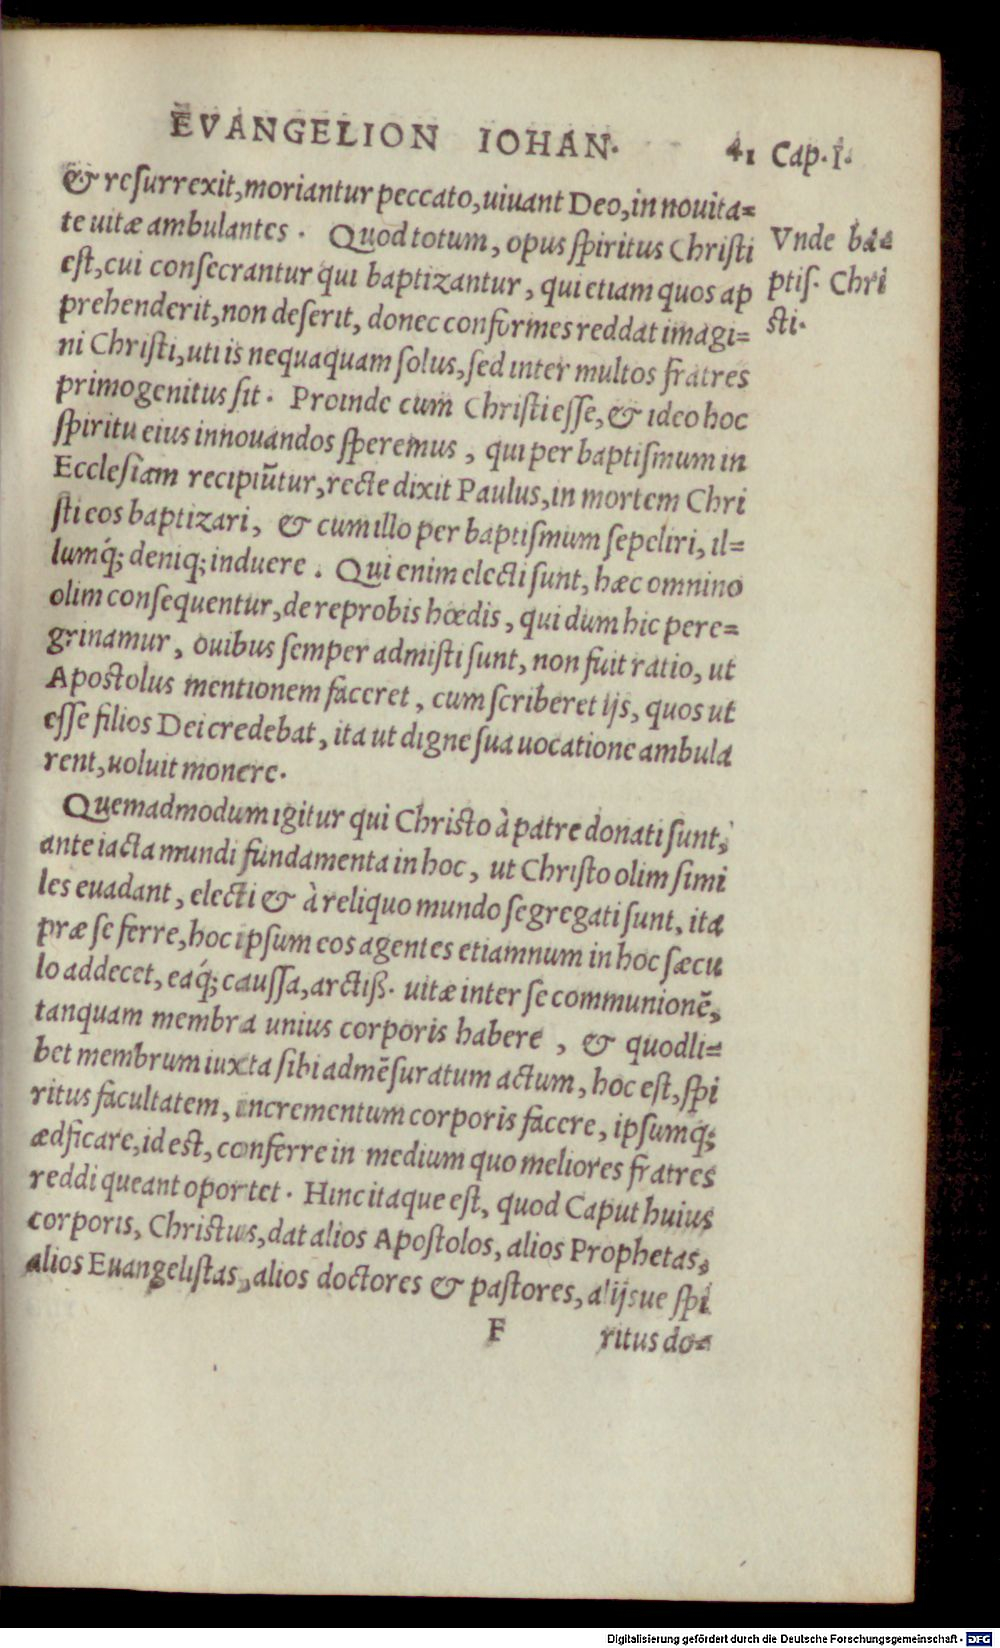 EVANGELION IOHAN. 41 Cap. I.
& resurrexit, moriantur peccato, uiuant Deo, in nouita=
te uitæ ambulantes. Quod totum, opus spiritus Christi
est, cui consecrantur qui baptizantur, qui etiam quos ap
prehenderit, non deserit, donec conformes reddat imagi=
ni Christi, uti is nequaquam solus, sed inter multos fratres
primogenitus sit. Proinde cum Christi esse, & ideo hoc
spiritu eius innouandos speremus, qui per baptismum in
Ecclesiam recipiũtur, recte dixit Paulus, in mortem Chri
sti eos baptizari, & cum illo per baptismum sepeliri, il=
lumq́; deniq; induere. Qui enim electi sunt, hæc omnino
olim consequentur, de reprobis hœdis, qui dum hic pere=
grinamur, ouibus semper admisti sunt, non fuit ratio, ut
Apostolus mentionem faceret, cum scriberet ijs, quos ut
esse filios Dei credebat, ita ut digne sua uocatione ambula
rent, uoluit monere.
Vnde ba=
ptis. Chri
sti.
Quemadmodum igitur qui Christo à patre donati sunt,
ante iacta mundi fundamenta in hoc, ut Christo olim simi
les euadant, electi & à reliquo mundo segregati sunt, ita
præ se ferre, hoc ipsum eos agentes etiamnum in hoc sæcu
lo addecet, eaq́; caussa, arctiß. uitæ inter se communionẽ,
tanquam membra unius corporis habere, & quodli=
bet membrum iuxta sibi admẽsuratum actum, hoc est, spi
ritus facultatem, incrementum corporis facere, ipsumq;
ædficare, id est, conferre in medium quo meliores fratres
reddi queant oportet. Hinc itaque est, quod Caput huius
corporis, Christus, dat alios Apostolos, alios Prophetas,
alios Euangelistas, alios doctores & pastores, alijsue spi
F ritus do=
Digitalisierung gefördert durch die Deutsche Forschungsgemeinschaft - DFG